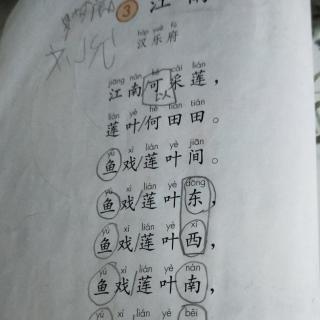 3 江南
hàn yuè fǔ
汉乐府
jiāng nán kě cǎi lián
江南可采莲，
以人
lián yè hé tián tián
莲叶/何田田。
yú xì lián yè jiān
鱼戏/莲叶间。
yú xì lián yè dōng
鱼戏/莲叶东，
yú xì lián yè xī
鱼戏/莲叶西，
yú xì lián yè nán
鱼戏/莲叶南，
yú xì lián yè běi